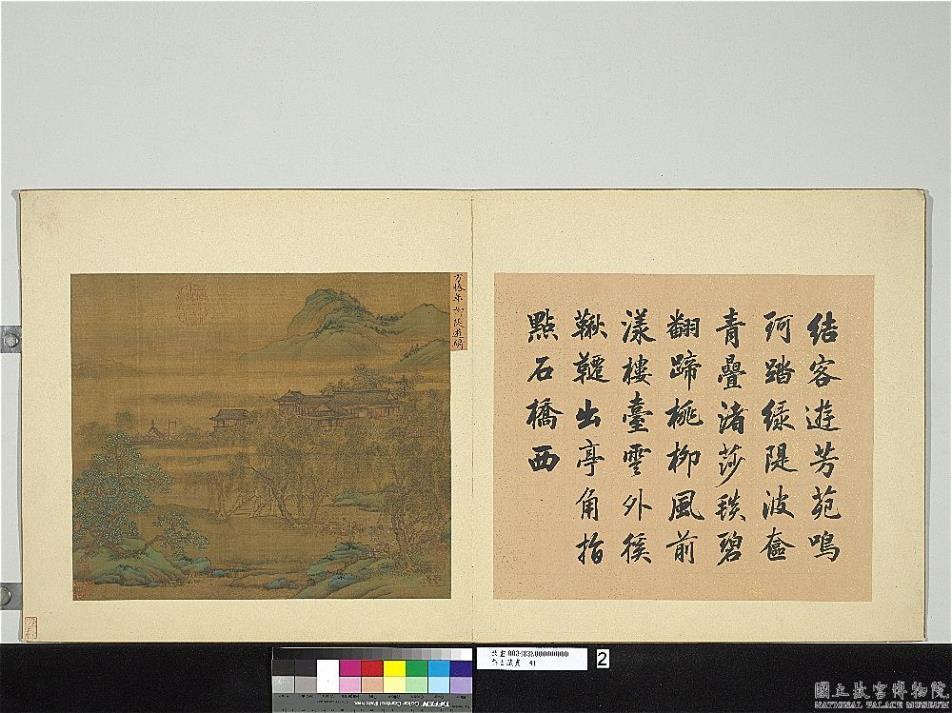 結客遊芳苑鳴
珂踏綠隄波奩
青疊渚莎毯碧
翻蹄桃柳風前
漾樓臺雲外徯
鞦韆出亭角指
點石橋西
方椿年柳
TIFFEN Color Control Patches
41
2
國立故宮博物院
NATIONAL PALACE MUSEUM